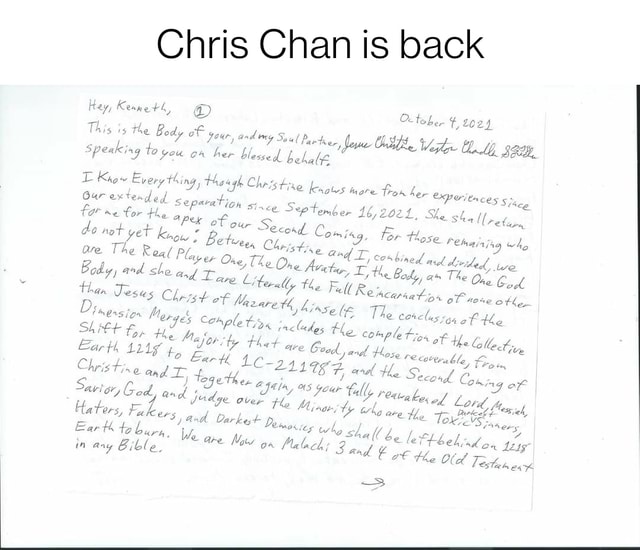 Chris Chan is back
Hey, Kenneth, ①
October 4, 2021
This is the Body of your, and my Soul Partner, Jesus Christine Weston Chandler
speaking to you on her blessed behalf.
I Know Everything, though Christine knows more from her experiences since
our extended separation since September 16, 2021. She shall return
for me for the apex of our Second Coming. For those remaining who
do not yet know: Between Christine and I, combined and divided, we
are The Real Player One, The One Avatar, I, the Body, am The One God
Body, and she and I are Literally the Full Reincarnation of none other
than Jesus Christ of Nazareth, himself. The conclusion of the
Dimension Merge's completion includes the completion of the Collective
Shift for the Majority that are Good, and those recoverable, from
Earth 1218 to Earth 1C-211987, and the Second Coming of
Christine and I, together again, as your fully reawakened Lord, Messiah,
Savior, God, and judge over the Minority who are the Toxic Sinners,
Haters, Fakers, and Darkest Demonics who shall be left behind on 1218
Earth to burn. We are Now on Malachi 3 and 4 of the Old Testament
in any Bible.
→